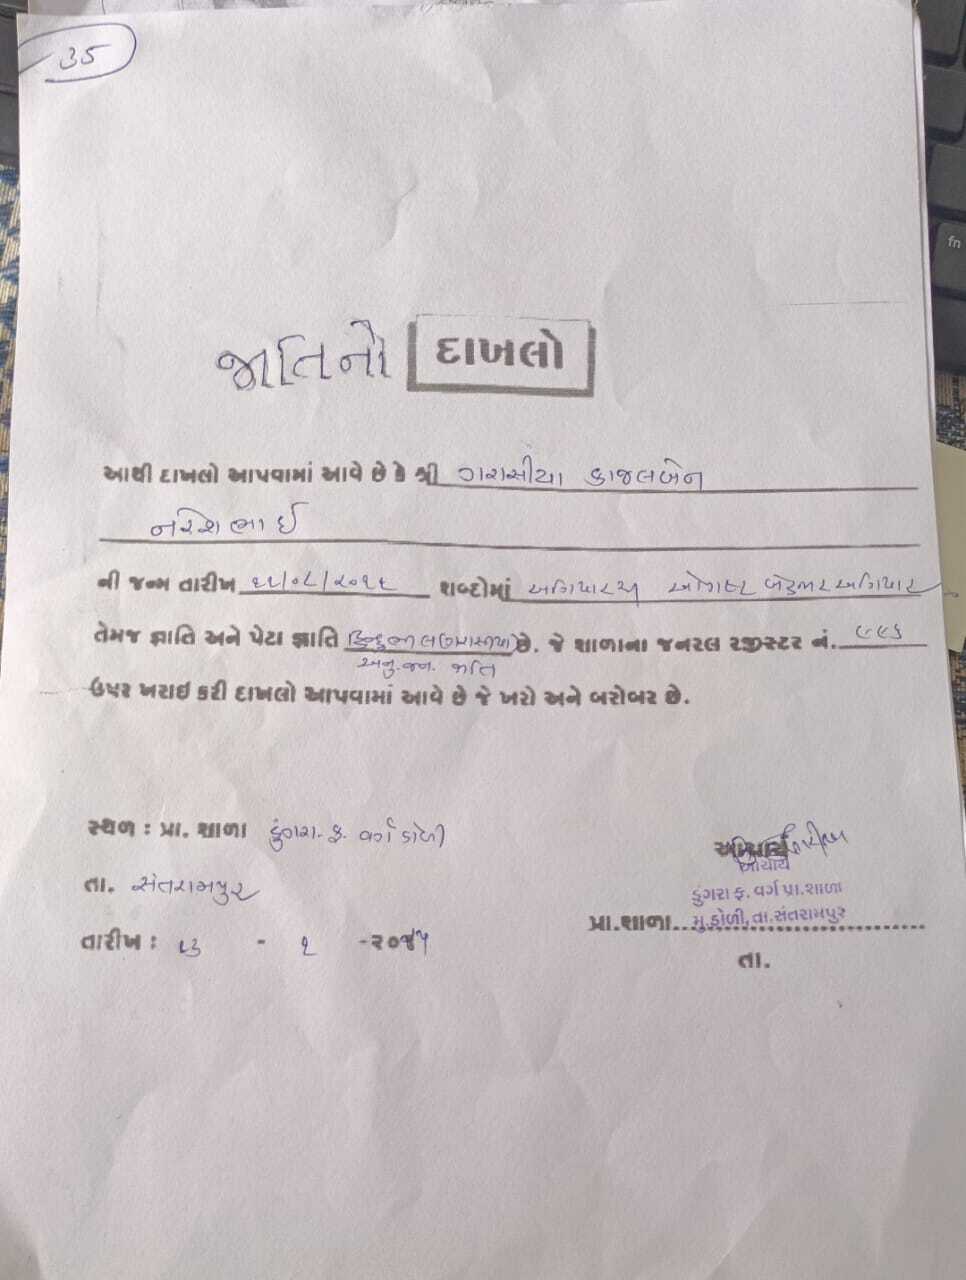 35
જાતિનો દાખલો
આથી દાખલો આપવામાં આવે છે કે શ્રી ગરાસીયા કાજલબેન
નરેશભાઈ
ની જન્મ તારીખ ૧૧/૦૮/૨૦૧૧ શબ્દોમાં અગિયાર ઓગષ્ટ બેહજાર અગિયાર
તેમજ જ્ઞાતિ અને પેટા જ્ઞાતિ છે. જે શાળાના જનરલ રજીસ્ટર નં.
અનુ. જન. જાતિ
ઉપર ખરાઇ કરી દાખલો આપવામાં આવે છે જે ખરો અને બરોબર છે.
સ્થળ : પ્રા. શાળા ડુંગરા ફ. વર્ગ ડોળી
તા. સંતરામપુર
તારીખ : - ૧ -૨૦૨૫
આચાર્ય
આચાર્ય
ડુંગરા ફ. વર્ગ પ્રા. શાળા
પ્રા.શાળા... મુ.ડોળી, તા.સંતરામપુર
તા.
fn